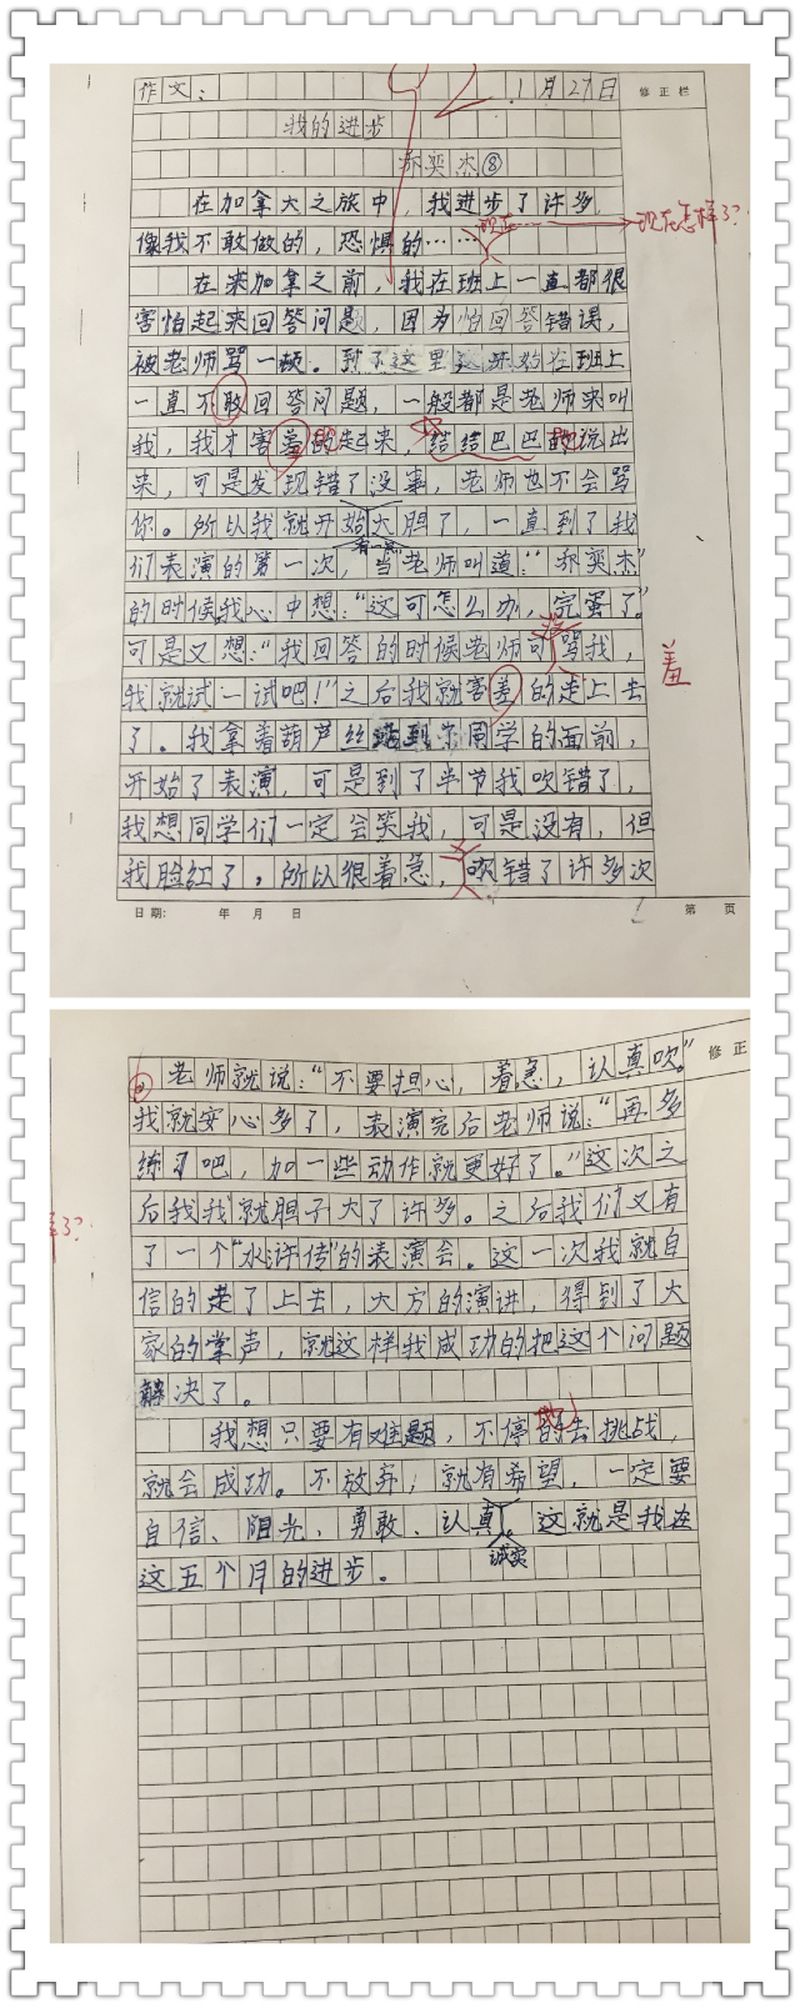 作文：
92
1月27日
修正栏
我的进步
乔奕杰⑧
在加拿大之旅中，我进步了许多，
现在……
现在怎样了？
像我不敢做的，恐惧的……
在来加拿之前，我在班上一直都很
害怕起来回答问题，因为怕回答错误，
被老师骂一顿。到了这里开始在班上
一直不敢回答问题，一般都是老师来叫
我，我才害羞的起来，结结巴巴的说出
来，可是发现错了没事，老师也不会骂
你。所以我就开始大胆了，一直到了我
有一点
们表演的第一次，当老师叫道：“乔奕杰”
的时候我心中想：“这可怎么办，完蛋了。”
可是又想：“我回答的时候老师可骂我，
没
羞
我就试一试吧！”之后我就害羞的走上去
了。我拿着葫芦丝站到同学的面前，
开始了表演，可是到了半节我吹错了，
我想同学们一定会笑我，可是没有，但
我脸红了，所以很着急，吹错了许多次
日期： 年 月 日
第 页
老师就说：“不要担心，着急，认真吹。”
修正
我就安心多了，表演完后老师说：“再多
练习吧，加一些动作就更好了。”这次之
后我我就胆子大了许多。之后我们又有
了一个“水浒传”的表演会。这一次我就自
信的走了上去，大方的演讲，得到了大
家的掌声，就这样我成功的把这个问题
解决了。
我想只要有难题，不停的去挑战，
地
就会成功。不放弃，就有希望，一定要
自信、阳光、勇敢、认真。这就是我在
诚实
这五个月的进步。